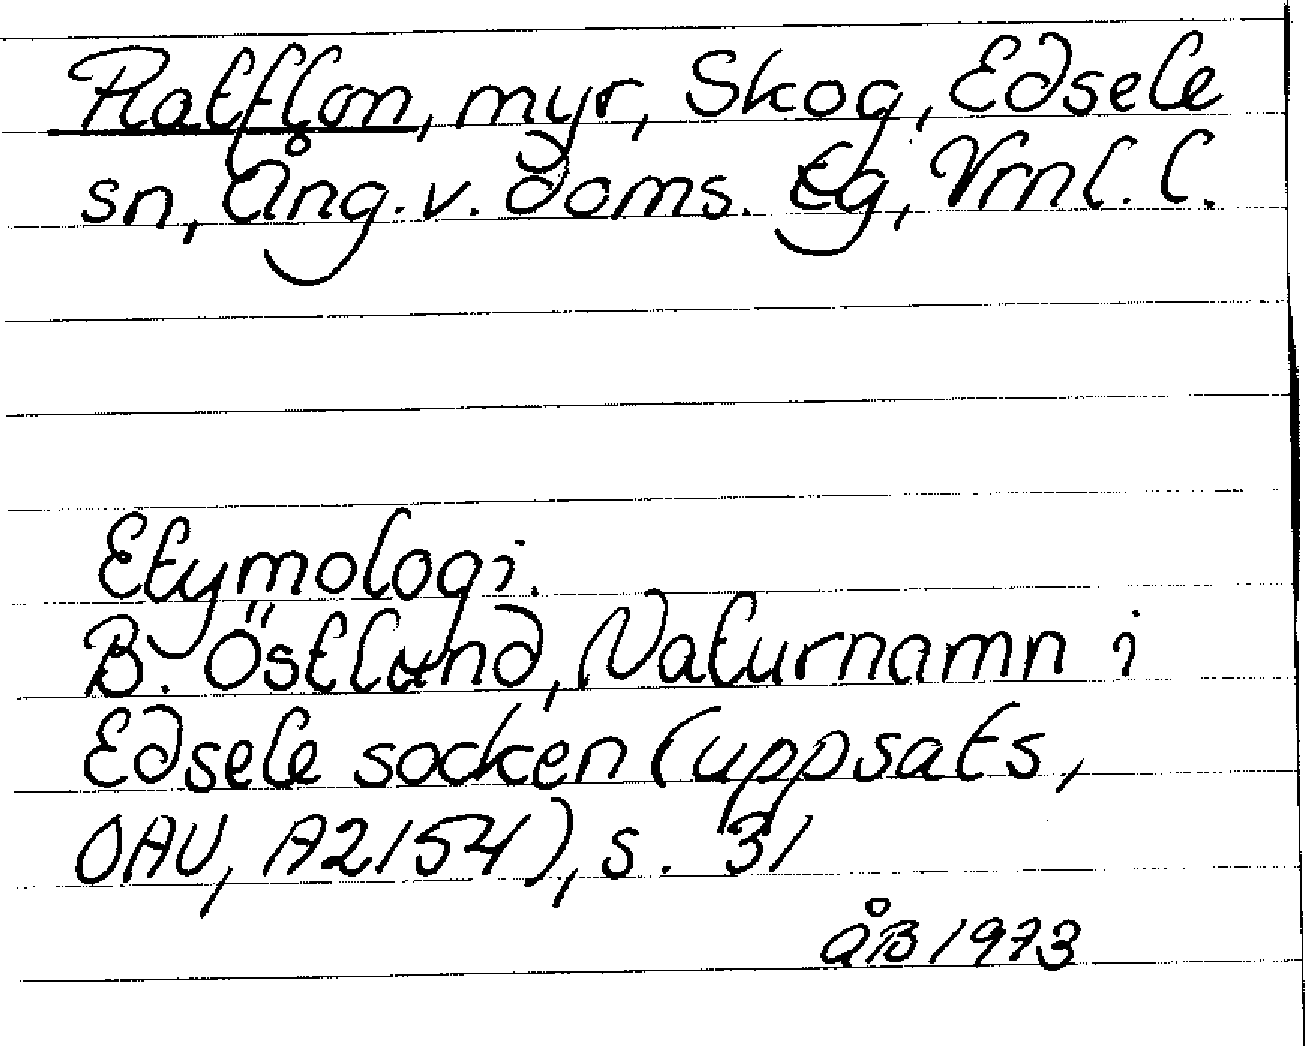 Platflon, myr, Skog, Edsele
sn, Ång. v. doms. Eg, Vrnl. l.
Etymologi.
B. Östlund, Naturnamn i
Edsele socken (uppsats,
OAU, A2154), s. 31
ÅB 1973